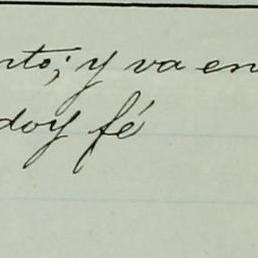 nto; y va en
doy fé